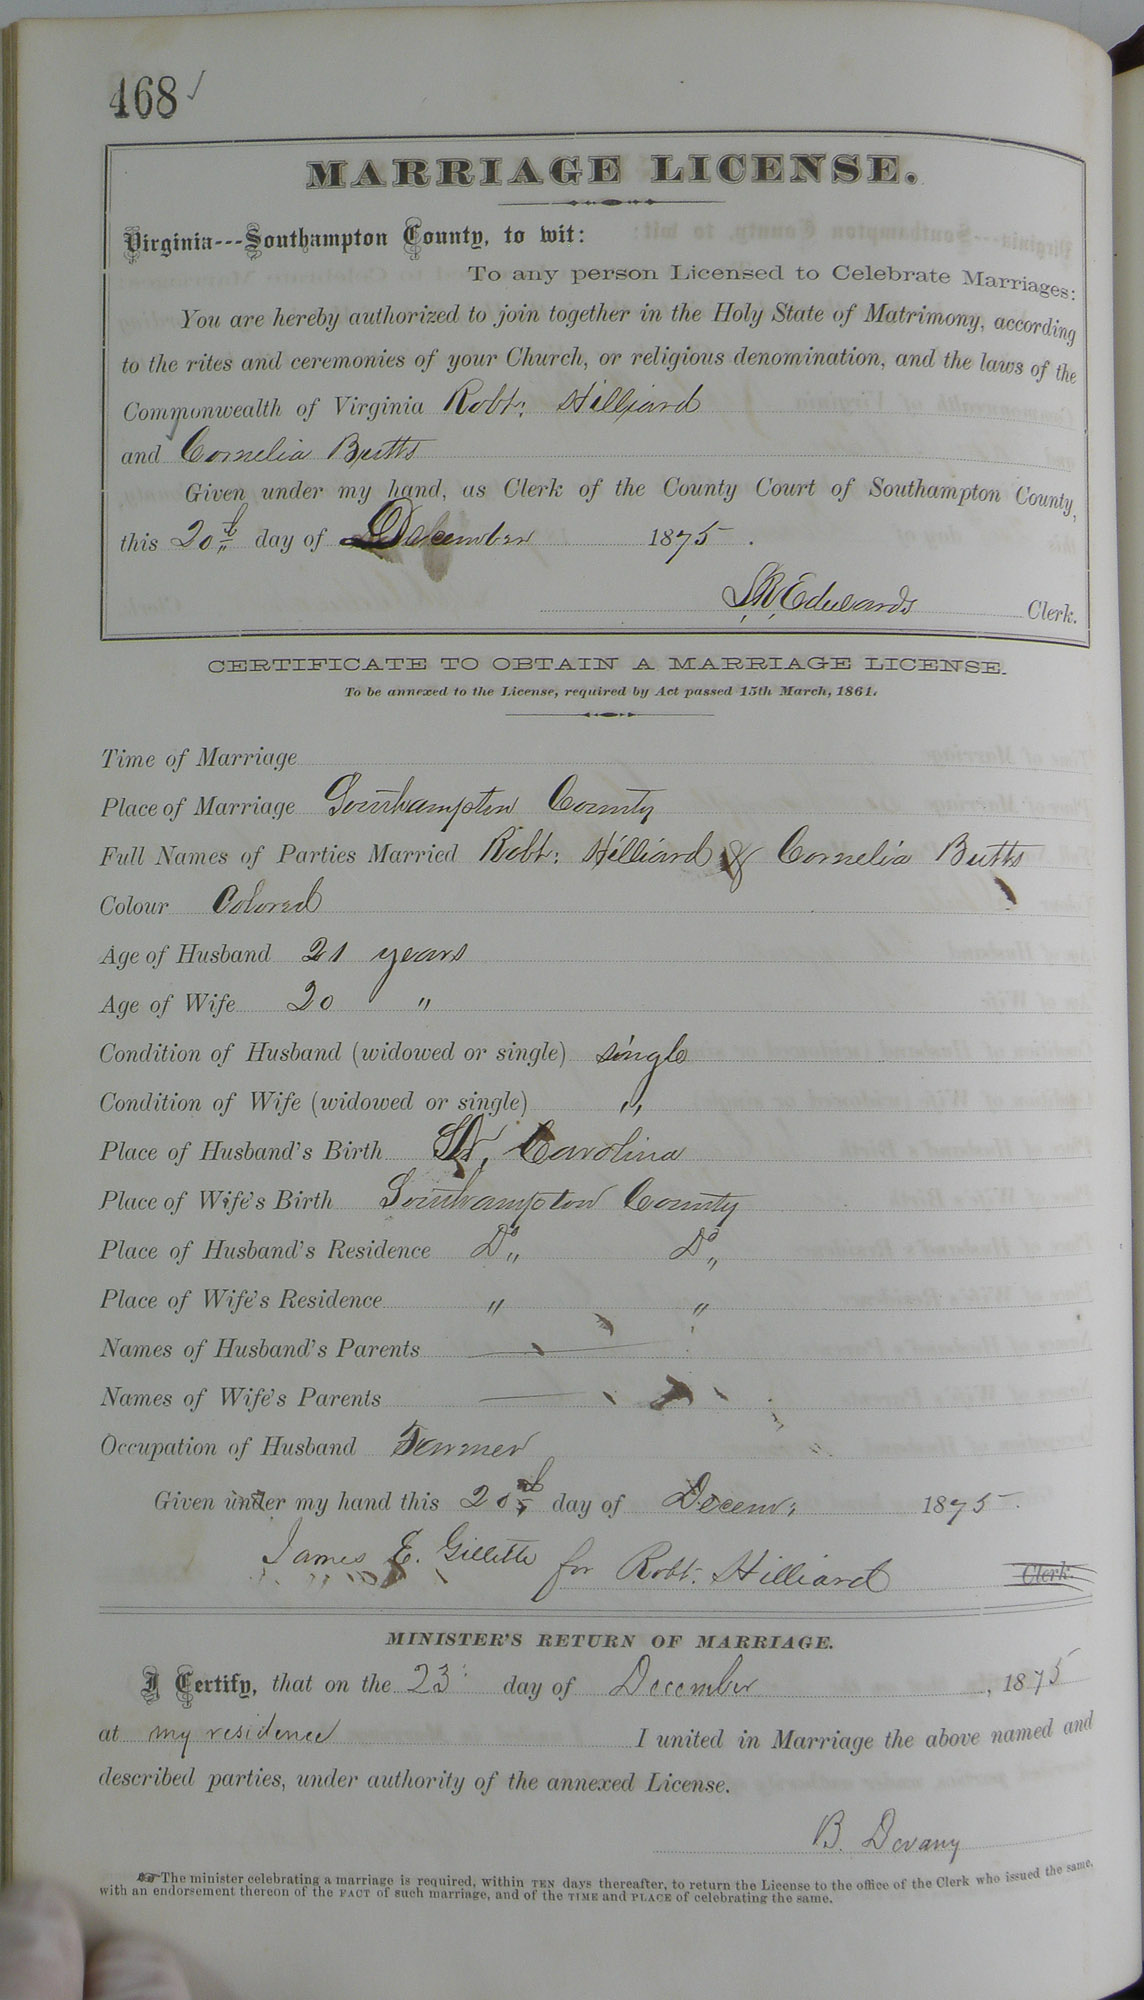 468 ✓
MARRIAGE LICENSE.
Virginia---Southampton County, to wit:
To any person Licensed to Celebrate Marriages:
You are hereby authorized to join together in the Holy State of Matrimony, according
to the rites and ceremonies of your Church, or religious denomination, and the laws of the
Commonwealth of Virginia Robt: Hilliard
and Cornelia Butts
Given under my hand, as Clerk of the County Court of Southampton County,
this 20th day of December 1875.
Edwards Clerk.
CERTIFICATE TO OBTAIN A MARRIAGE LICENSE.
To be annexed to the License, required by Act passed 15th March, 1861.
Time of Marriage
Place of Marriage Southampton County
Full Names of Parties Married Robt: Hilliard & Cornelia Butts
Colour Colored
Age of Husband 21 years
Age of Wife 20 "
Condition of Husband (widowed or single) single
Condition of Wife (widowed or single) "
Place of Husband's Birth Carolina
Place of Wife's Birth Southampton County
Place of Husband's Residence Do " Do "
Place of Wife's Residence " "
Names of Husband's Parents —
Names of Wife's Parents —
Occupation of Husband Farmer
Given under my hand this 20th day of Decem: 1875.
James E. Gillette for Robt: Hilliard Clerk.
MINISTER'S RETURN OF MARRIAGE.
I Certify, that on the 23 day of December, 1875
at my residence I united in Marriage the above named and
described parties, under authority of the annexed License.
B. Devany
☞ The minister celebrating a marriage is required, within TEN days thereafter, to return the License to the office of the Clerk who issued the same,
with an endorsement thereon of the FACT of such marriage, and of the TIME and PLACE of celebrating the same.